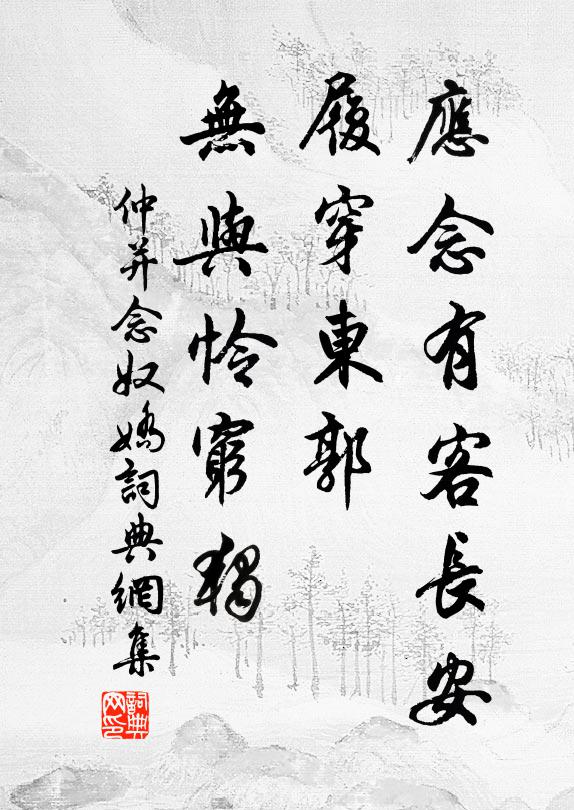 應念有客長安
履穿東郭
無與怜窮獨
仲并念奴嬌詞典網集
詞典网印